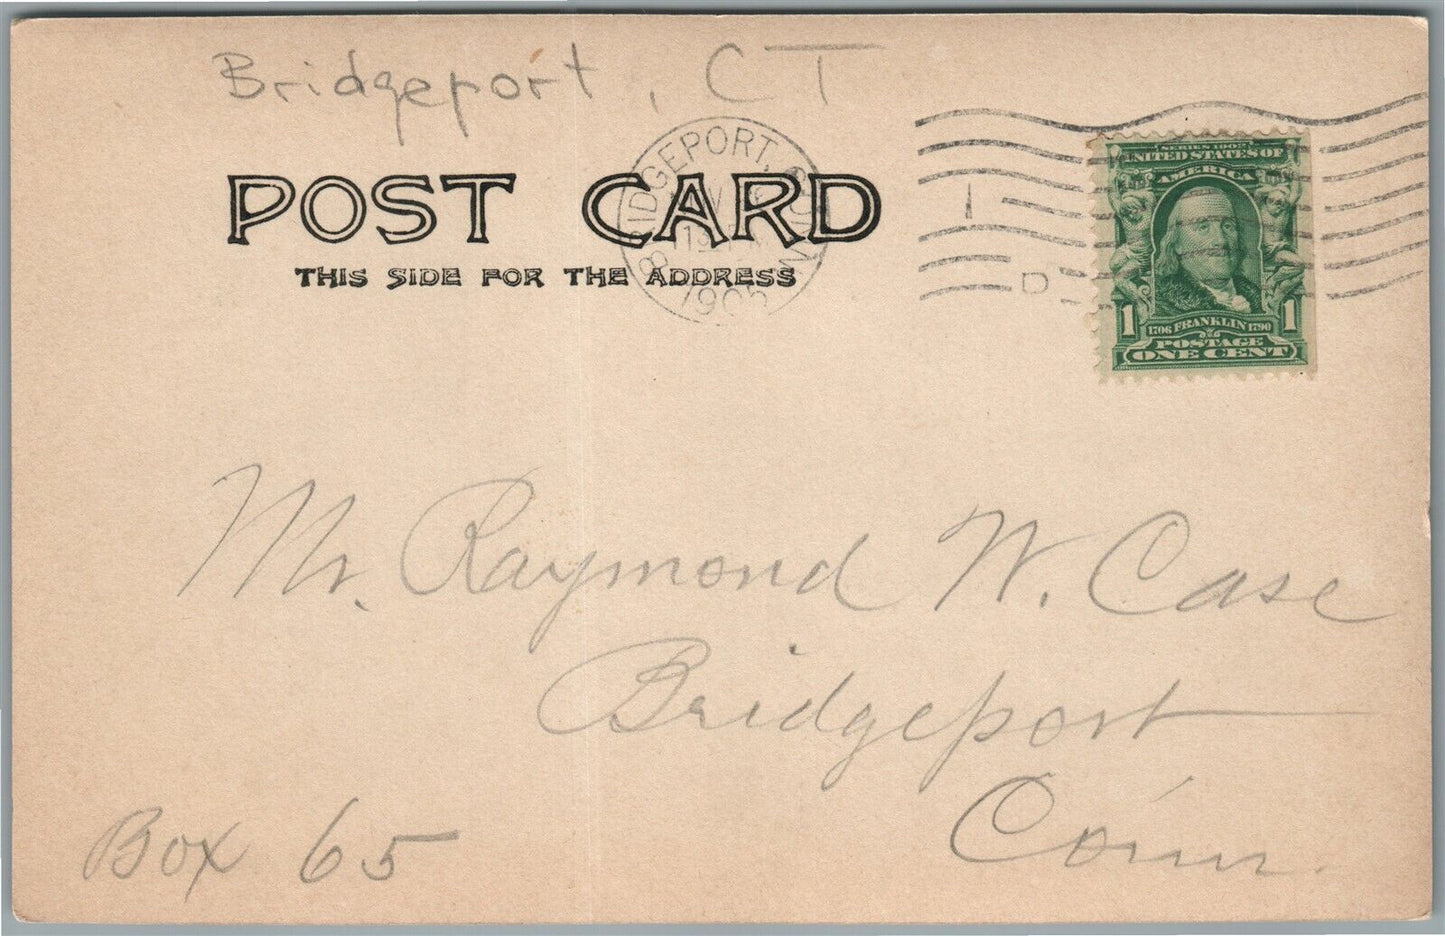 Bridgeport, CT
POST CARD
THIS SIDE FOR THE ADDRESS
BRIDGEPORT, CONN
1905
D
SERIES 1902
UNITED STATES OF
AMERICA
1 1706 FRANKLIN 1790 1
POSTAGE
ONE CENT
Mr. Raymond W. Case
Bridgeport
Conn.
Box 65